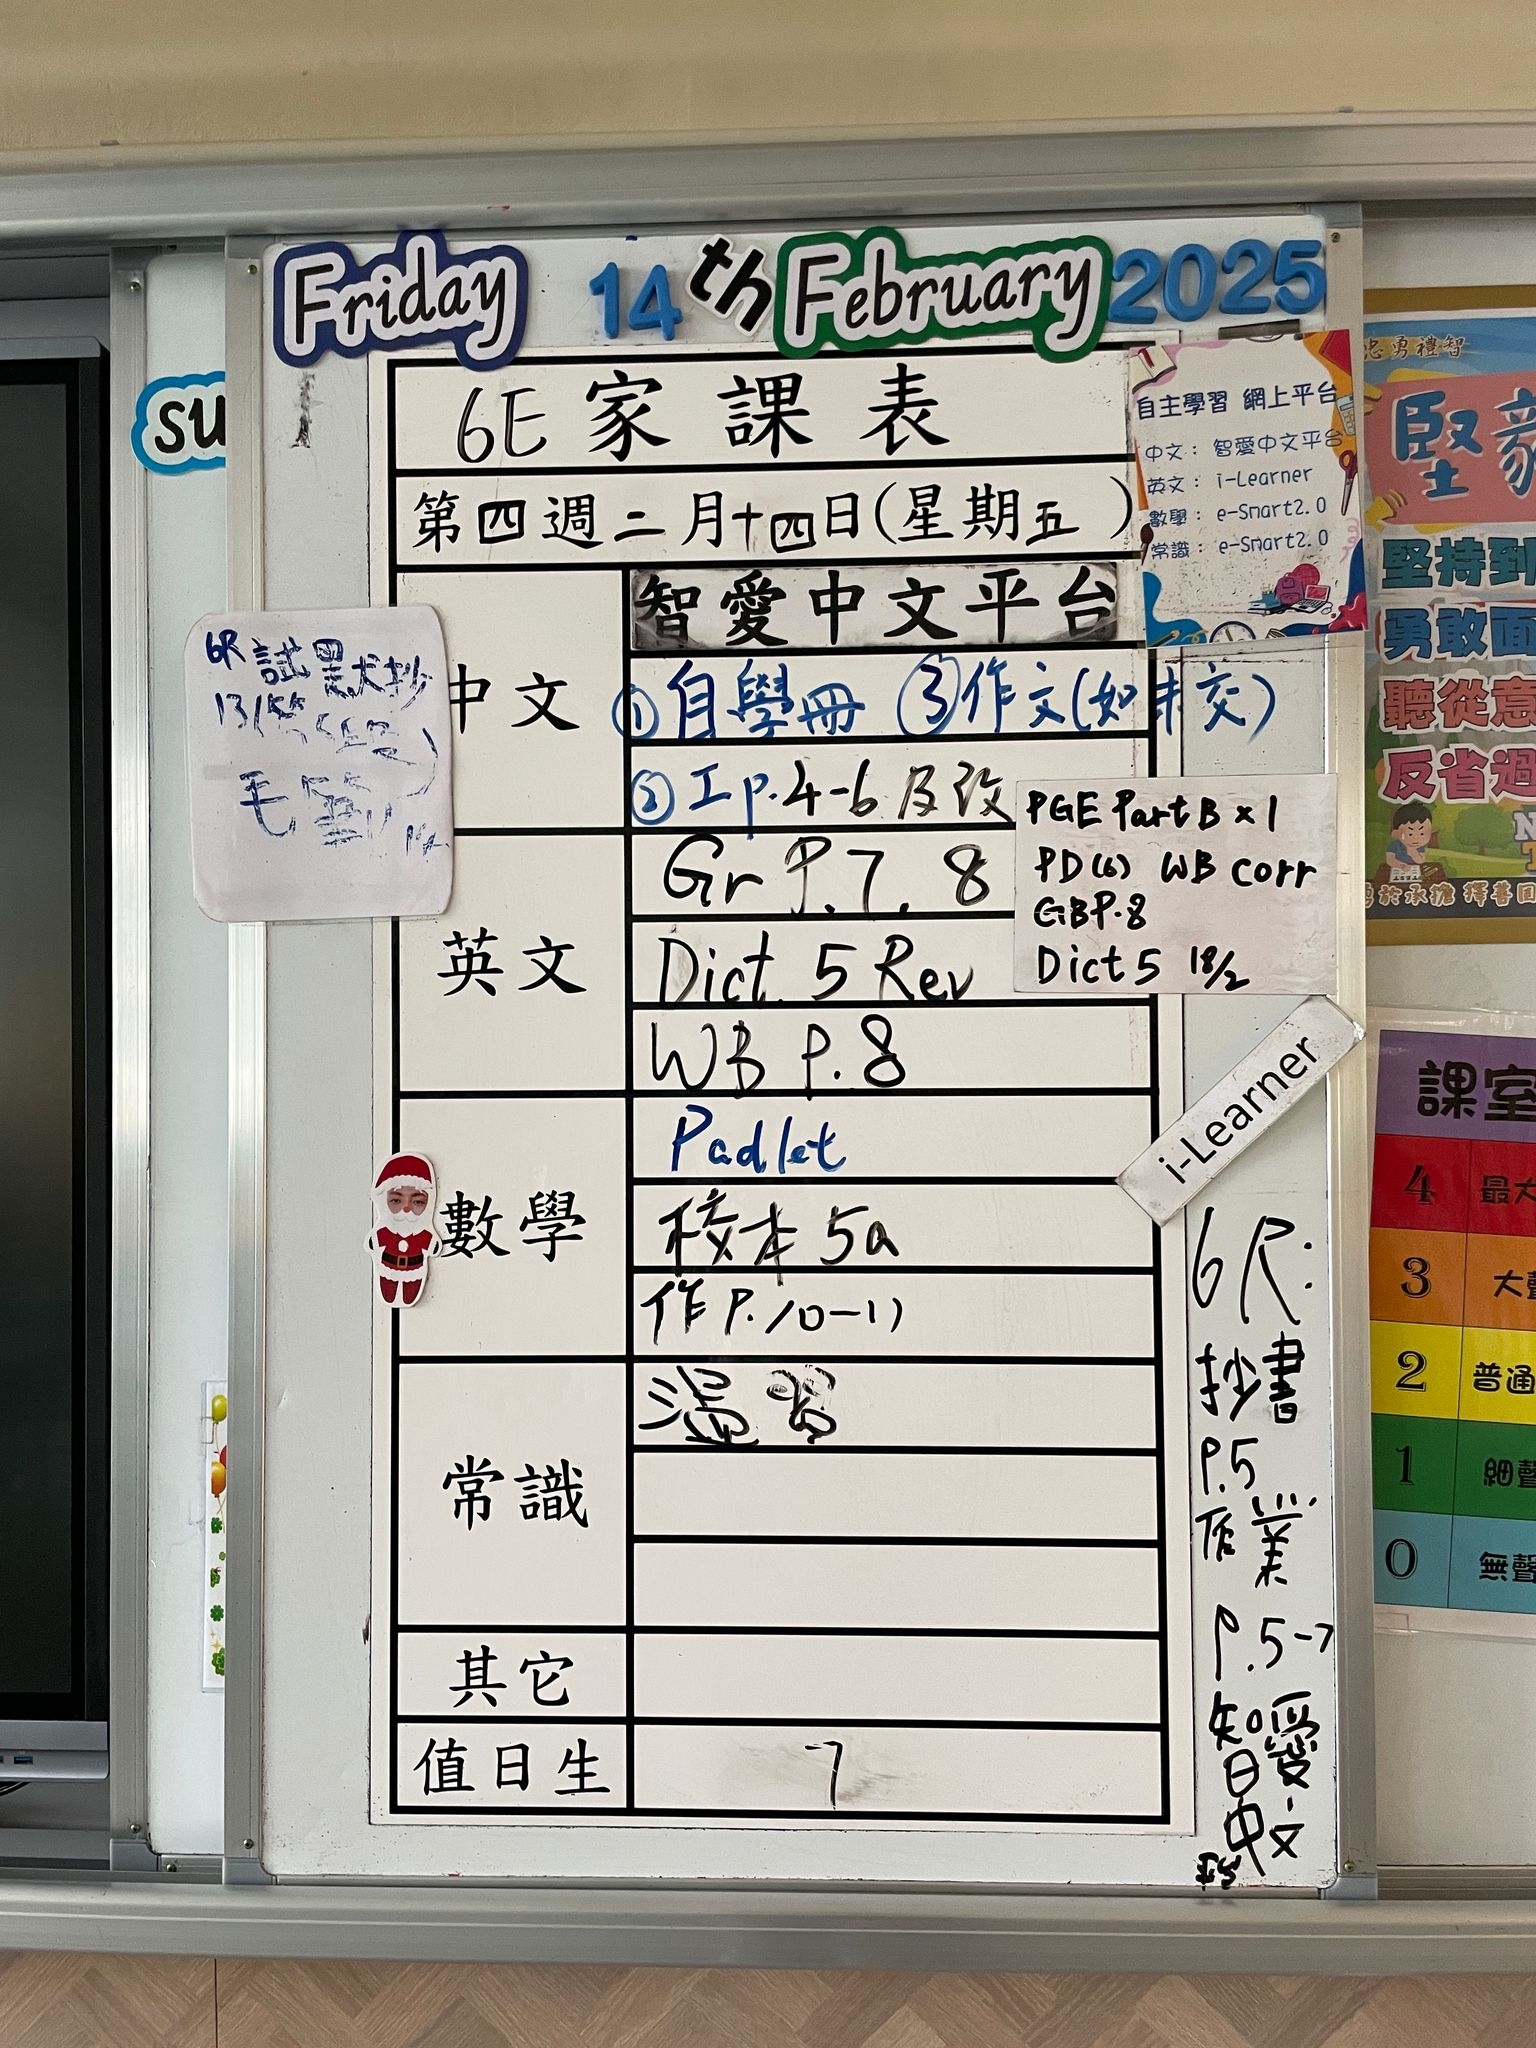 Friday 14th February 2025
su
6E 家課表
第四週二月十四日(星期五)
自主學習 網上平台
中文：智愛中文平台
英文：i-Learner
數學：e-Smart2.0
常識：e-Smart2.0
中文
智愛中文平台
①自學冊 ③作文(如未交)
②工p.4-6及改
6R 試 默抄
毛筆
英文
Gr P.7. 8
Dict. 5 Rev
WB P.8
PGE Part B x 1
PD(6) WB corr
GBP.8
Dict 5 18/2
i-Learner
數學
Padlet
校本 5a
作 P.10-11
常識
溫習
其它
值日生
7
6R:
抄書
P.5
作業
P.5-7
智愛
中文
平台
忠勇禮智
堅毅
堅持到
勇敢面
聽從意
反省過
於承擔 擇善固
課室
4 最大
3 大聲
2 普通
1 細聲
0 無聲